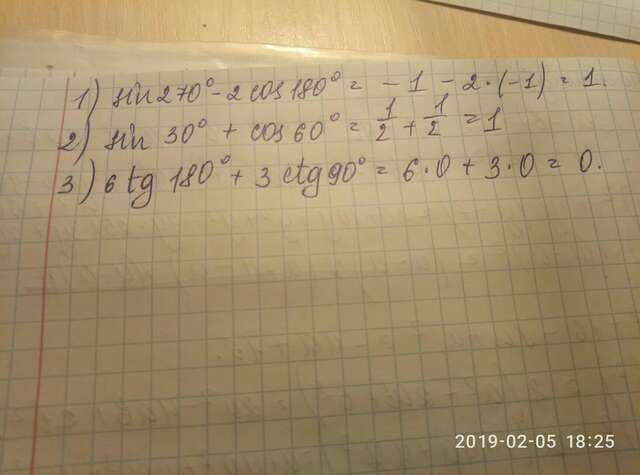 1) sin 270° - 2 cos 180° = - 1 - 2 · (-1) = 1.
2) sin 30° + cos 60° = 1/2 + 1/2 = 1
3) 6 tg 180° + 3 ctg 90° = 6 · 0 + 3 · 0 = 0.
2019-02-05 18:25